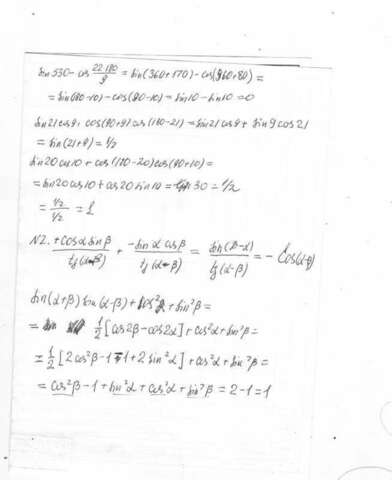 sin 530 - cos 22·180/9 = sin(360+170) - cos(360+80) =
= sin(180-10) - cos(90-10) = sin10 - sin10 = 0
sin21 cos9 + cos(90+9) cos(180-21) = sin21 cos9 + sin9 cos21
= sin(21+9) = 1/2
sin20 cos10 + cos(180-20) cos(90+10) =
= sin20 cos10 + cos20 sin10 = 30 = 1/2
= 1/2 / 1/2 = 1
N2. +cosα sinβ / tg(α-β) + -sinα cosβ / tg(α-β) = sin(β-α) / tg(α-β) = - cos(α-β)
sin(α+β) sin(α-β) + cos²α + sin²β =
= 1/2 [cos2β - cos2α] + cos²α + sin²β =
= 1/2 [2cos²β - 1 - 1 + 2sin²α] + cos²α + sin²β =
= cos²β - 1 + sin²α + cos²α + sin²β = 2-1 = 1